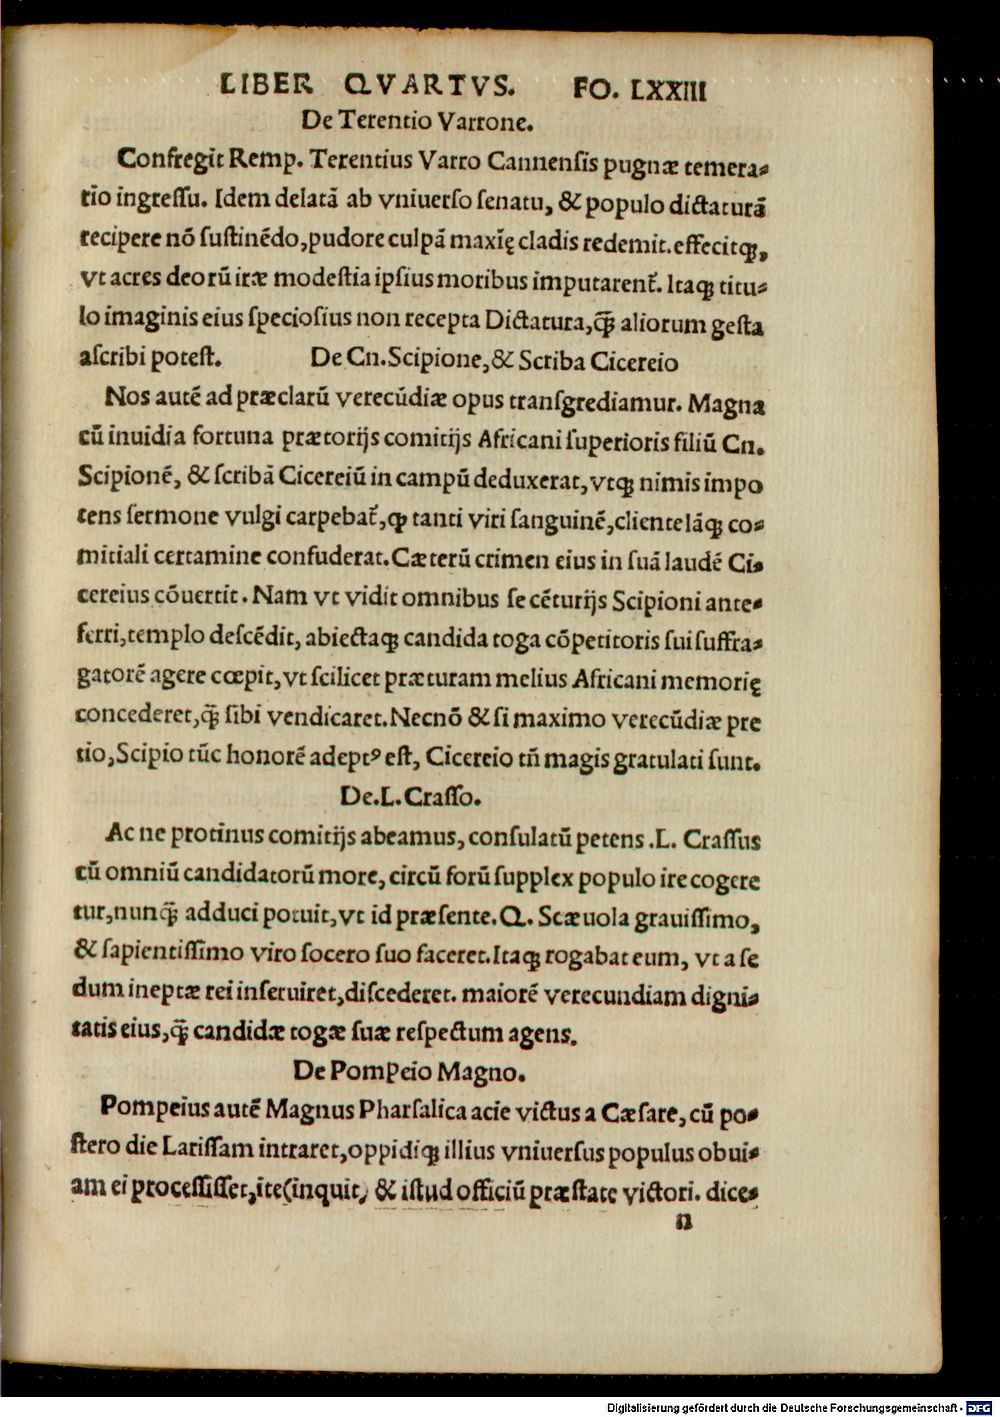 LIBER QVARTVS. FO. LXXIII
De Terentio Varrone.
Confregit Remp. Terentius Varro Cannenſis pugnæ temera⸗
rio ingreſſu. Idem delatā ab vniuerſo ſenatu, & populo dictaturā
recipere nō ſuſtinēdo, pudore culpā maxīę cladis redemit. effecitq́;,
vt acres deorū iræ modeſtia ipſius moribus imputarent᷑. Itaq; titu⸗
lo imaginis eius ſpecioſius non recepta Dictatura, q̄̃ aliorum geſta
aſcribi poteſt. De Cn. Scipione, & Scriba Cicereio
Nos autē ad præclarū verecūdiæ opus tranſgrediamur. Magna
cū inuidia fortuna prætorijs comitijs Africani ſuperioris filiū Cn.
Scipionē, & ſcribā Cicereiū in campū deduxerat, vtq; nimis impo
tens ſermone vulgi carpebat᷑, ꝙ tanti viri ſanguinē, clientelāq; co⸗
mitiali certamine confuderat. Cæterū crimen eius in ſuā laudē Ci⸗
cereius cōuertit. Nam vt vidit omnibus ſe cēturijs Scipioni ante⸗
ferri, templo deſcēdit, abiectaq; candida toga cōpetitoris ſui ſuffra⸗
gatorē agere cœpit, vt ſcilicet præturam melius Africani memorię
concederet, q̄̃ ſibi vendicaret. Necnō & ſi maximo verecūdiæ pre
tio, Scipio tūc honorē adeptꝰ eſt, Cicereio tñ magis gratulati ſunt.
De. L. Craſſo.
Ac ne protinus comitijs abeamus, conſulatū petens .L. Craſſus
cū omniū candidatorū more, circū forū ſupplex populo ire cogere
tur, nunq̄̃ adduci potuit, vt id præſente. Q. Scæuola grauiſſimo,
& ſapientiſſimo viro ſocero ſuo faceret. Itaq; rogabat eum, vt a ſe
dum ineptæ rei inſeruiret, diſcederet. maiorē verecundiam digni⸗
tatis eius, q̄̃ candidæ togæ ſuæ reſpectum agens.
De Pompeio Magno.
Pompeius autē Magnus Pharſalica acie victus a Cæſare, cū po⸗
ſtero die Lariſſam intraret, oppidiq; illius vniuerſus populus obui⸗
am ei proceſſiſſet, ite (inquit) & iſtud officiū præſtate victori. dice⸗
n
Digitalisierung gefördert durch die Deutsche Forschungsgemeinschaft - DFG